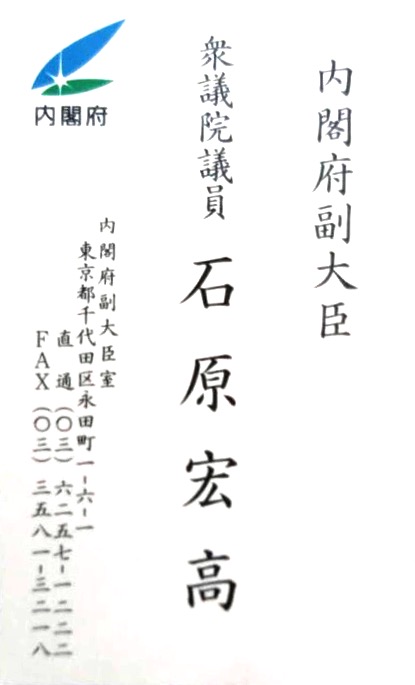 内閣府副大臣
衆議院議員 石原宏高
内閣府
内閣府副大臣室
東京都千代田区永田町一-六-一
直通(〇三)六二五七-一二二二
FAX(〇三)三五八一-三二一八